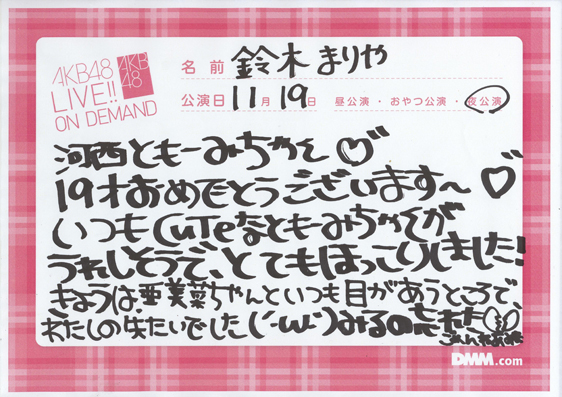 AKB48
LIVE!!
ON DEMAND
AKB
48
名前 鈴木まりや
公演日 11月19日 昼公演・おやつ公演・夜公演
河西ともーみちゃん♡
19才おめでとうございます〜♡
いつもCuTeなともーみちゃんが
うれしそうで、とてもほっこりしました!
きょうは、亜美菜ちゃんといつも目があうところで、
わたしの失たいでした(´・ω・`)みるの忘れた
ごめんなさい
DMM.com